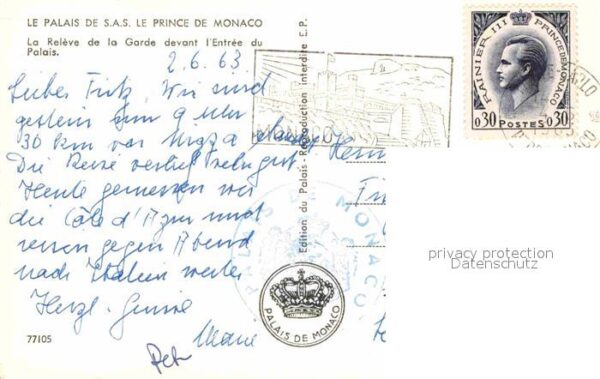 LE PALAIS DE S.A.S. LE PRINCE DE MONACO
La Relève de la Garde devant l'Entrée du
Palais.
2.6.63
Lieber Fritz, Wir sind
gestern um 9 Uhr
30 km vor
Die Reise verlief sehr gut
Heute geniessen wir
die Côte d'Azur und
reisen gegen Abend
nach Italien weiter
Herzl. Grüsse
77105
Edition du Palais - Reproduction interdite E.P.
PALAIS DE MONACO
RAINIER III PRINCE DE MONACO
0.30 POSTES 0.30
privacy protection
Datenschutz